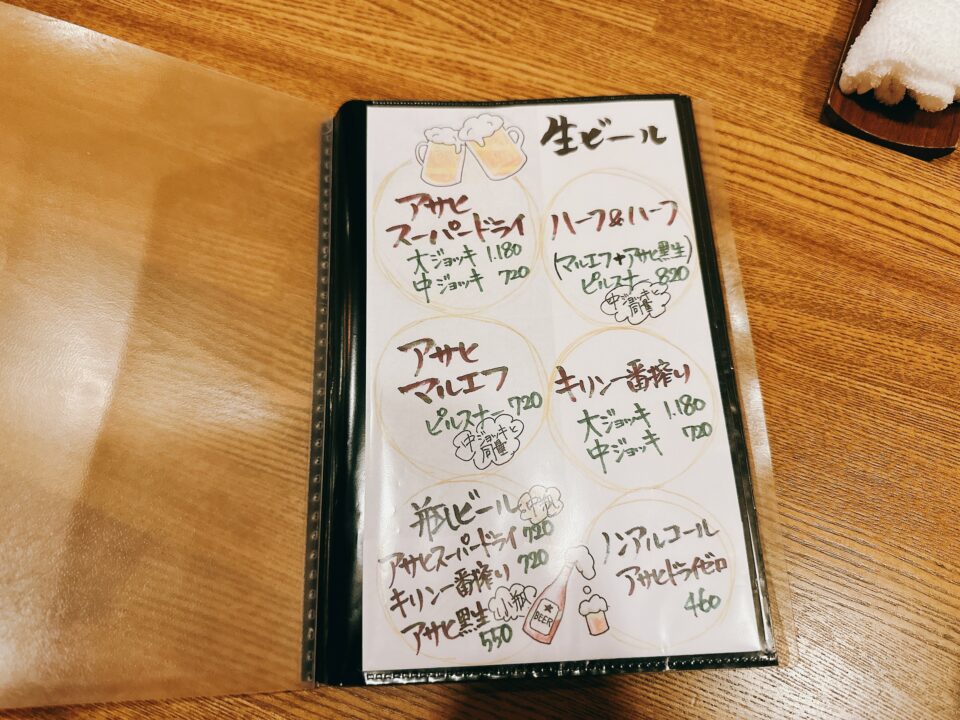 生ビール
アサヒ
スーパードライ
大ジョッキ 1.180
中ジョッキ 720
ハーフ&ハーフ
(マルエフ+アサヒ黒生)
ピルスナー 820
中ジョッキと
同量
アサヒ
マルエフ
ピルスナー 720
中ジョッキと
同量
キリン一番搾り
大ジョッキ 1.180
中ジョッキ 720
瓶ビール 中瓶
アサヒスーパードライ 720
キリン一番搾り 720
アサヒ黒生 小瓶
550
BEER
ノンアルコール
アサヒドライゼロ
460